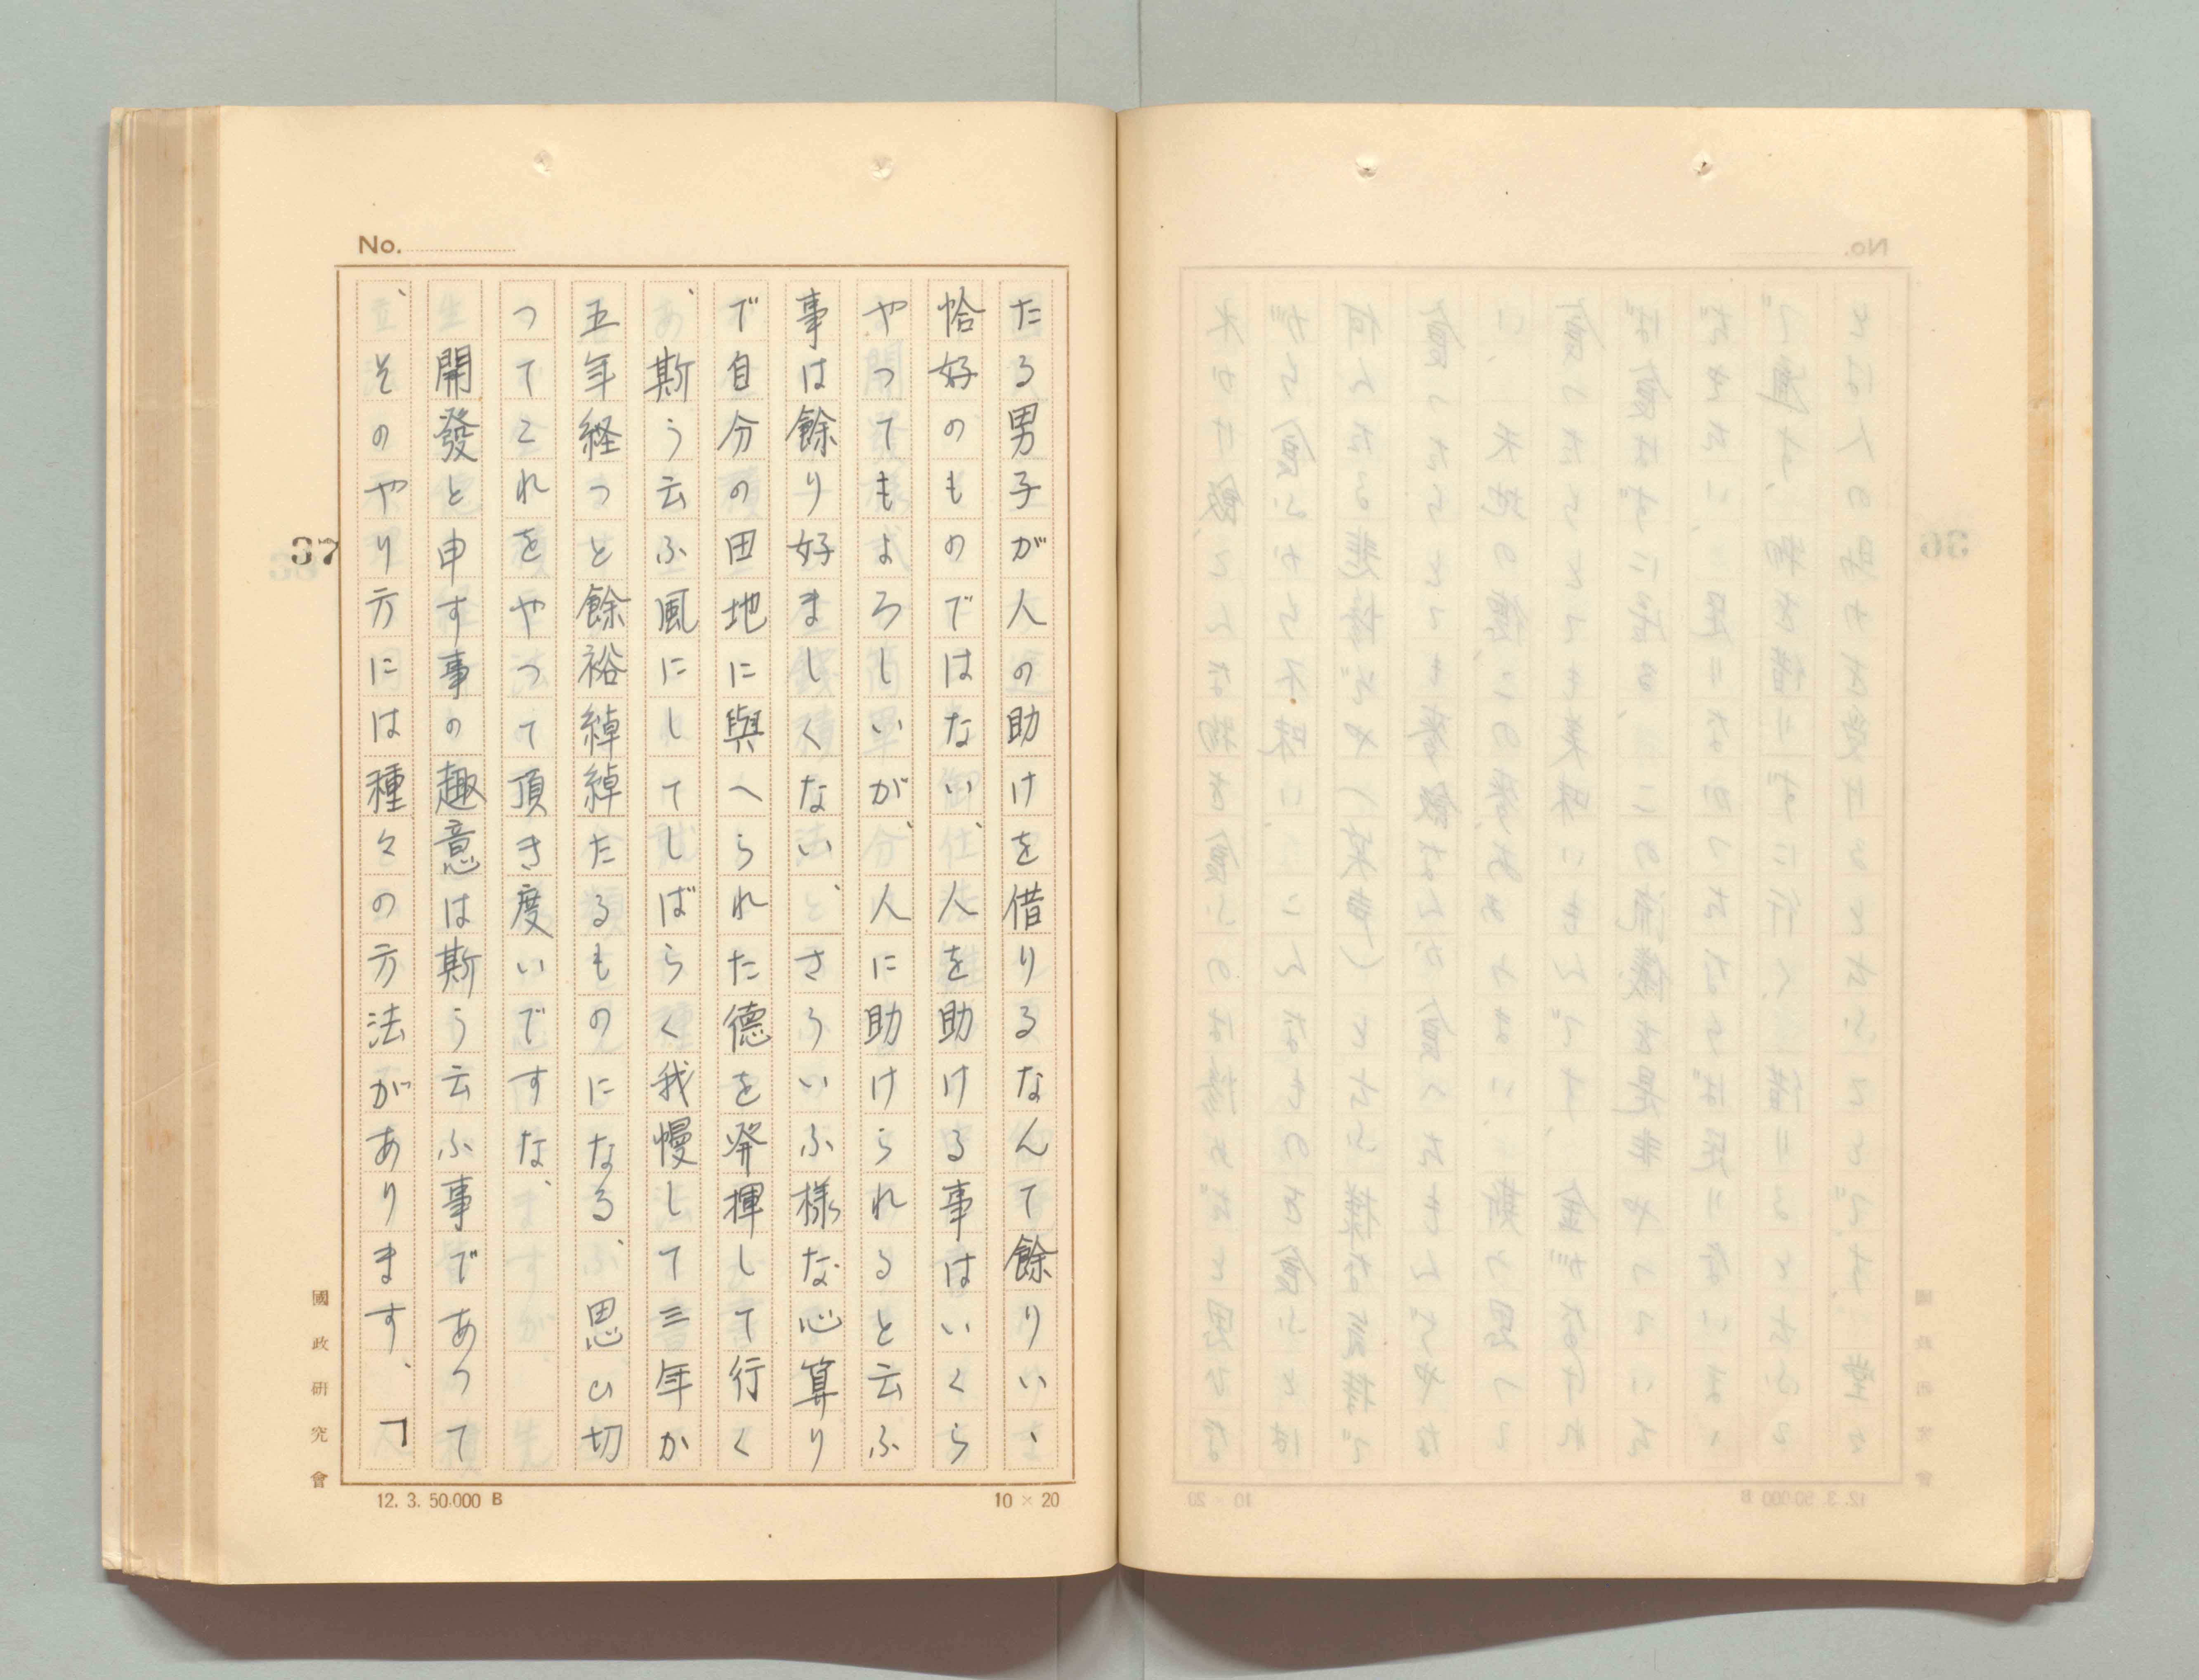 No.
たる男子が人の助けを借りるなんて餘りい、
恰好のものではない、人を助ける事はいくら
やってもよろしいが、人に助けられると云ふ
事は餘り好ましくない、とさういふ様な心算り
で自分の田地に與へられた德を発揮して行く
、斯う云ふ風にしてしばらく我慢して三年か
五年経つと餘裕綽綽たるものになる、思ひ切
つてこれをやつて頂き度いですな、
開發と申す事の趣意は斯う云ふ事であつて
、そのやり方には種々の方法があります、「
37
國政研究會
12. 3. 50.000 B
10 × 20